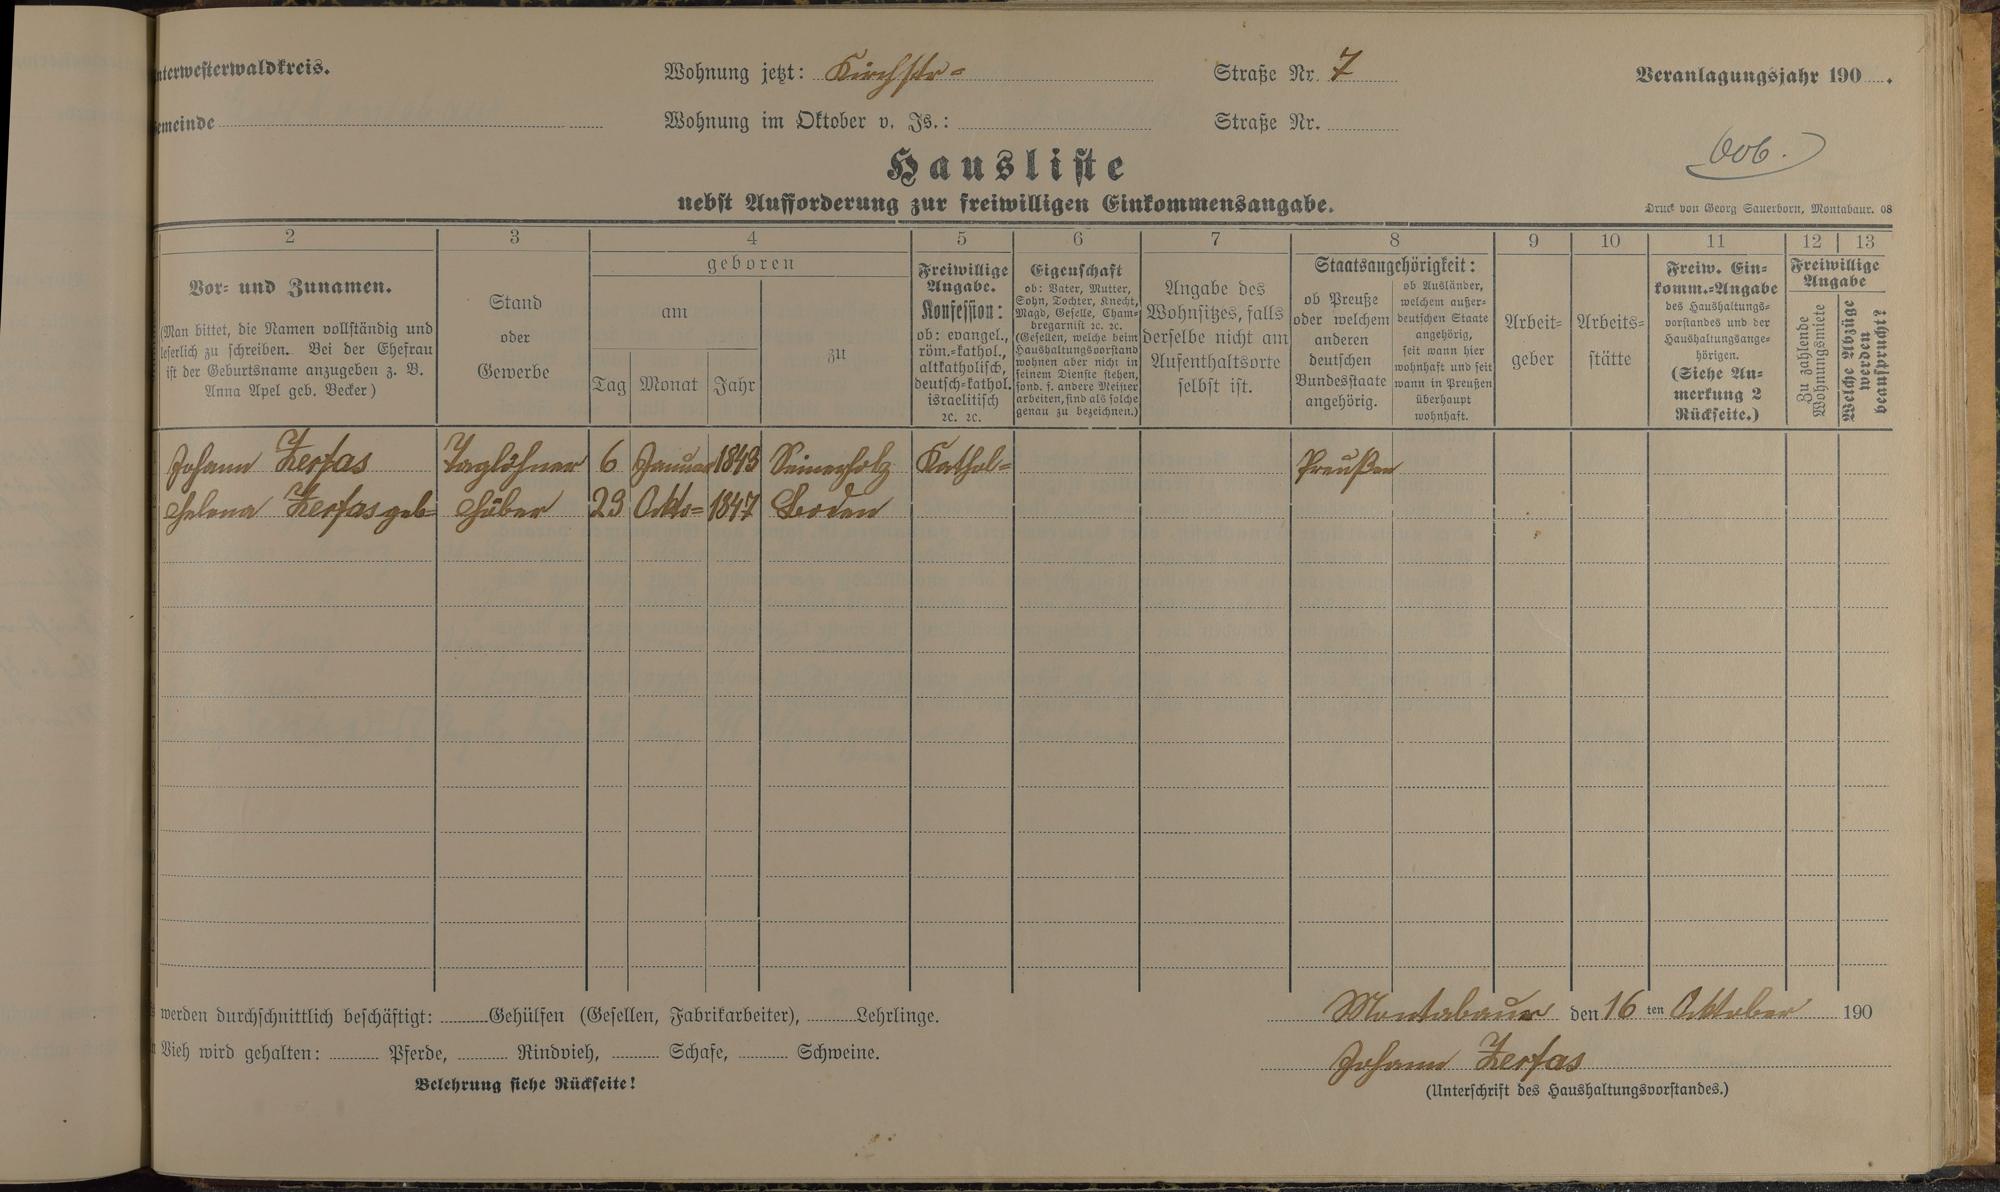 nterwesterwaldkreis.
Wohnung jetzt: Kirchstr= Straße Nr. 7
Veranlagungsjahr 190 .
emeinde
Wohnung im Oktober v. Js.: Straße Nr.
606.
Hausliste
nebst Aufforderung zur freiwilligen Einkommensangabe.
Druck von Georg Sauerborn, Montabaur. 08
2 3 4 5 6 7 8 9 10 11 12 13
Vor= und Zunamen.
(Man bittet, die Namen vollständig und
leserlich zu schreiben. Bei der Ehefrau
ist der Geburtsname anzugeben z. B.
Anna Apel geb. Becker)
Stand
oder
Gewerbe
geboren
am
Tag Monat Jahr
zu
Freiwillige
Angabe.
Konfession:
ob: evangel.,
röm.=kathol.,
altkatholisch,
deutsch=kathol.
israelitisch
ꝛc. ꝛc.
Eigenschaft
ob: Vater, Mutter,
Sohn, Tochter, Knecht,
Magd, Geselle, Cham=
bregarnist ꝛc. ꝛc.
(Gesellen, welche beim
Haushaltungsvorstand
wohnen aber nicht in
seinem Dienste stehen,
sond. f. andere Meister
arbeiten, sind als solche
genau zu bezeichnen.)
Angabe des
Wohnsitzes, falls
derselbe nicht am
Aufenthaltsorte
selbst ist.
Staatsangehörigkeit:
ob Preuße
oder welchem
anderen
deutschen
Bundesstaate
angehörig.
ob Ausländer,
welchem außer=
deutschen Staate
angehörig,
seit wann hier
wohnhaft und seit
wann in Preußen
überhaupt
wohnhaft.
Arbeit=
geber
Arbeits=
stätte
Freiw. Ein=
komm.=Angabe
des Haushaltungs=
vorstandes und der
Haushaltungsange=
hörigen.
(Siehe An=
merkung 2
Rückseite.)
Freiwillige
Angabe
Zu zahlende
Wohnungsmiete
Welche Abzüge
werden
beansprucht?
Johann Zerfas Taglöhner 6 Januar 1843 Kathol= Preußen
Helena Zerfas geb= Hüber 23 Okto= 1847 Boden
werden durchschnittlich beschäftigt: Gehülfen (Gesellen, Fabrikarbeiter), Lehrlinge.
Montabaur den 16 ten Oktober 190
Vieh wird gehalten: Pferde, Rindvieh, Schafe, Schweine.
Johann Zerfas
Belehrung siehe Rückseite!
(Unterschrift des Haushaltungsvorstandes.)